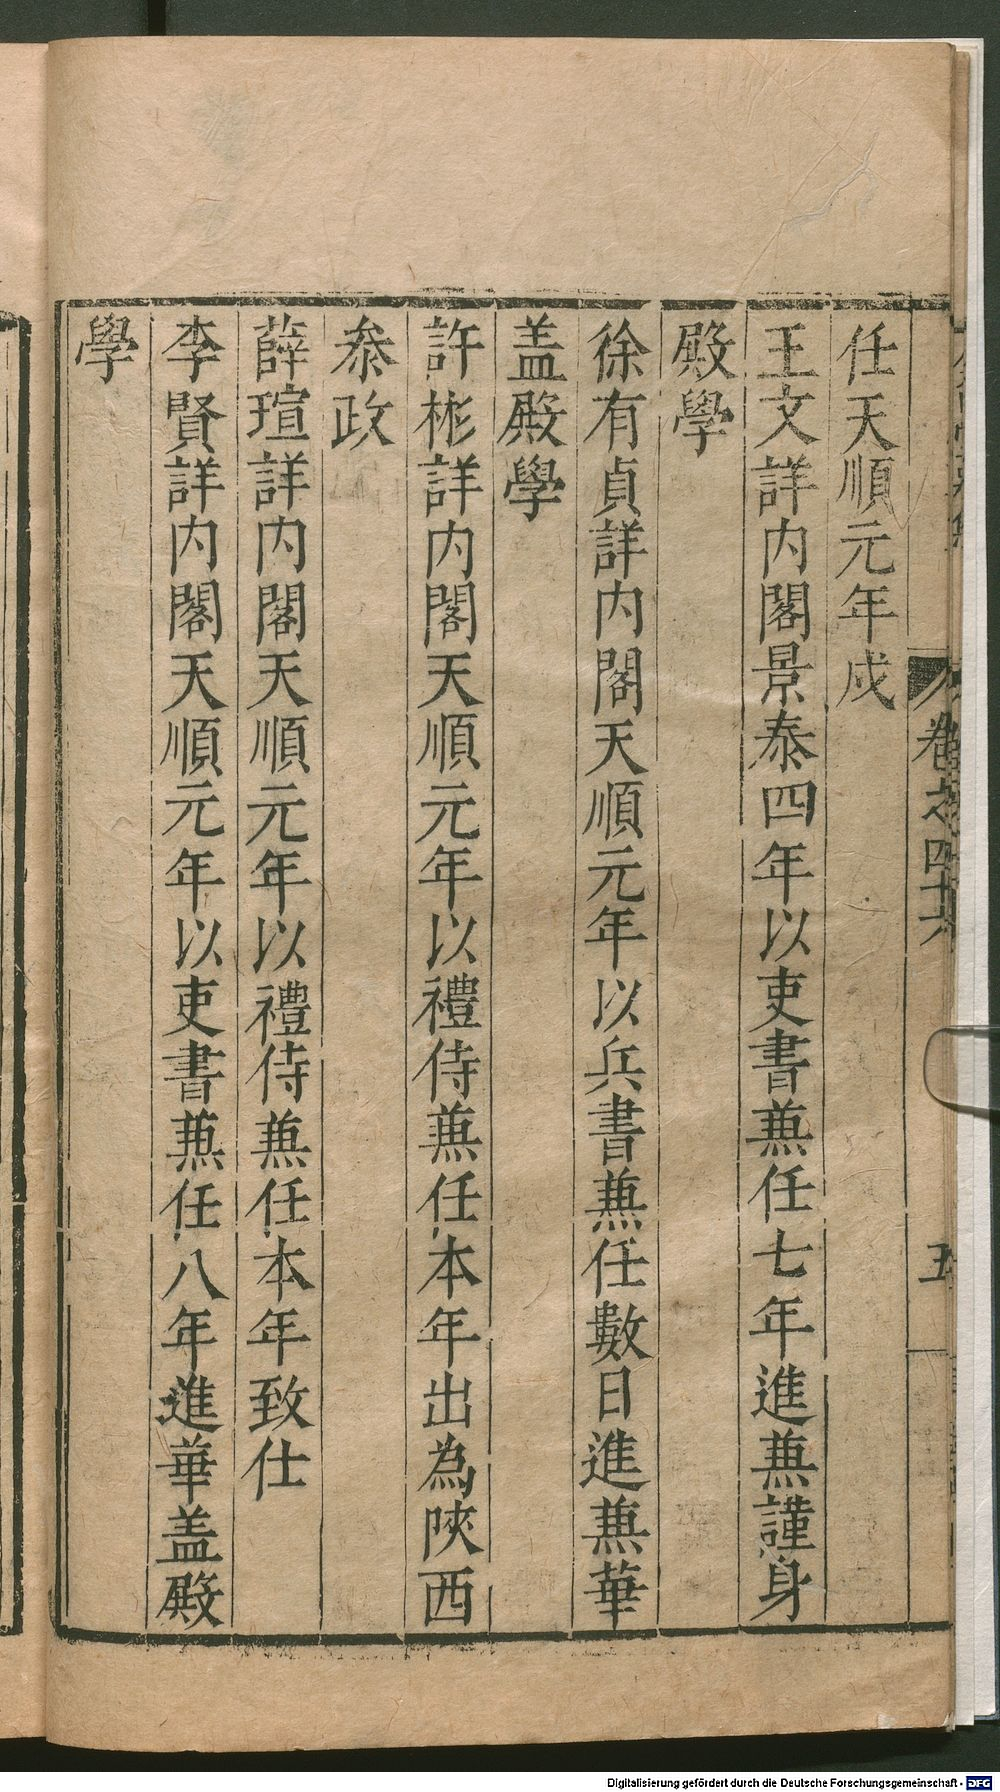 卷之四十六
五
任天順元年戍
王文詳内閣景泰四年以吏書蒹任七年進蒹謹身
殿學
徐有貞詳内閣天順元年以兵書蒹任數日進蒹華
盖殿學
許彬詳内閣天順元年以禮侍蒹任本年出為陜西
叅政
薛瑄詳内閣天順元年以禮侍蒹任本年致仕
李賢詳内閣天順元年以吏書蒹任八年進華盖殿
學
Digitalisierung gefördert durch die Deutsche Forschungsgemeinschaft - DFG